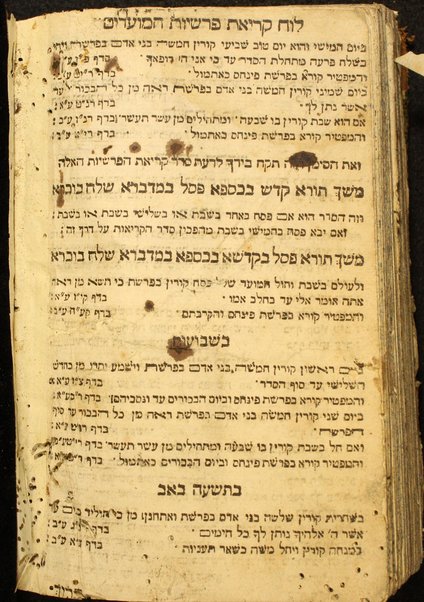 לוח קריאת פרשיות המועדים
ביום חמישי והוא יום טוב שביעי קורין חמשה בני אדם בפרשת ויהי
בשלח פרעה מתחלת הסדר עד כי אני ה׳ רופאך׃
והמפטיר קורא בפרשת פינחס כאתמול׃ בדף
ביום שמיני קורין חמשה בני אדם בפרשת ראה מן כל הבכור עד
אשר נתן לך׃ בדף רנ״ט ע״ב׃
אם הוא שבת קורין בו שבעה ומתחילים מן עשר תעשר׃ בדף
והמפטיר קורא בפרשת פינחס כאתמול׃
וזאת הסימן תקח בידך לדעת סדר קריאת הפרשיות האלה
משך תורא קדש בכספא פסל במדברא שלח בוכרא
וזה הסדר הוא אם פסח באחד בשבת או בשלישי בשבת או בשבת׃
ואם יבא פסח בחמישי בשבת מהפכין סדר הקריאות על דרך זה׃
משך תורא פסל בקדשא בכספא במדברא שלח בוכרא
ולעולם בשבת וחול המועד של פסח קורין בפרשת כי תשא מן ראה
אתה אומר אלי עד בחלב אמו׃ בדף קי״ז ע״א׃
והמפטיר קורא בפרשת פינחס והקרבתם׃ בדף
בשבועות
ביום ראשון קורין חמשה בני אדם בפרשת וישמע יתרו מן בחדש
השלישי עד סוף הסדר׃ בדף צ״ז ע״א׃
והמפטיר קורא בפרשת פינחס וביום הבכורים עד ונסכיהם׃ בדף
ביום שני קורין חמשה בני אדם בפרשת ראה מן כל הבכור עד סוף
הפרשה
ואם חל בשבת קורין בו שבעה ומתחילים מן עשר תעשר׃ בדף
והמפטיר קורא בפרשת פינחס וביום הבכורים כאתמול׃
בתשעה באב
בשחרית קורין שלשה בני אדם בפרשת ואתחנן מן כי תוליד בנים עד
אשר ה׳ אלהיך נותן לך כל הימים׃ בדף
במנחה קורין ויחל משה כשאר תעניות